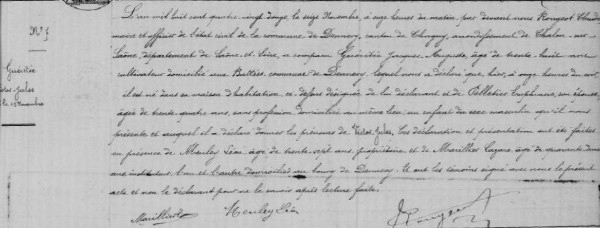 N° 7
Guénitée
Victor Jules
L'an mil huit cent quatre vingt douze, le seize Novembre, à onze heures du matin, par devant nous Rougeot Claude
maire et officier de l'état civil de la commune de Dennevy, canton de Chagny, arrondissement de Chalon-sur-
Saône, département de Saône et Loire, a comparu Guénitée Jacques Auguste, âgé de trente huit ans
cultivateur domicilié aux commune de Dennevy, lequel nous a déclaré que hier, à onze heures du soir
il est né dans sa maison d'habitation et désignée de lui déclarant et de Pelletier Euphrasie, son épouse,
âgée de trente quatre ans, sans profession domiciliée au même lieu un enfant du sexe masculin qu'il nous
présente et auquel il a déclaré donner les prénoms de Victor Jules. Les déclaration et présentation ont été faites
en présence de Menley Léon âgé de trente sept ans, propriétaire et de Marillier âgé de quarante
ans instituteur l'un et l'autre domiciliés au bourg de Dennevy. Et ont les témoins signé avec nous le présent
acte et non le déclarant pour ne le savoir après lecture faite.
Marillier Menley Léon Rougeot